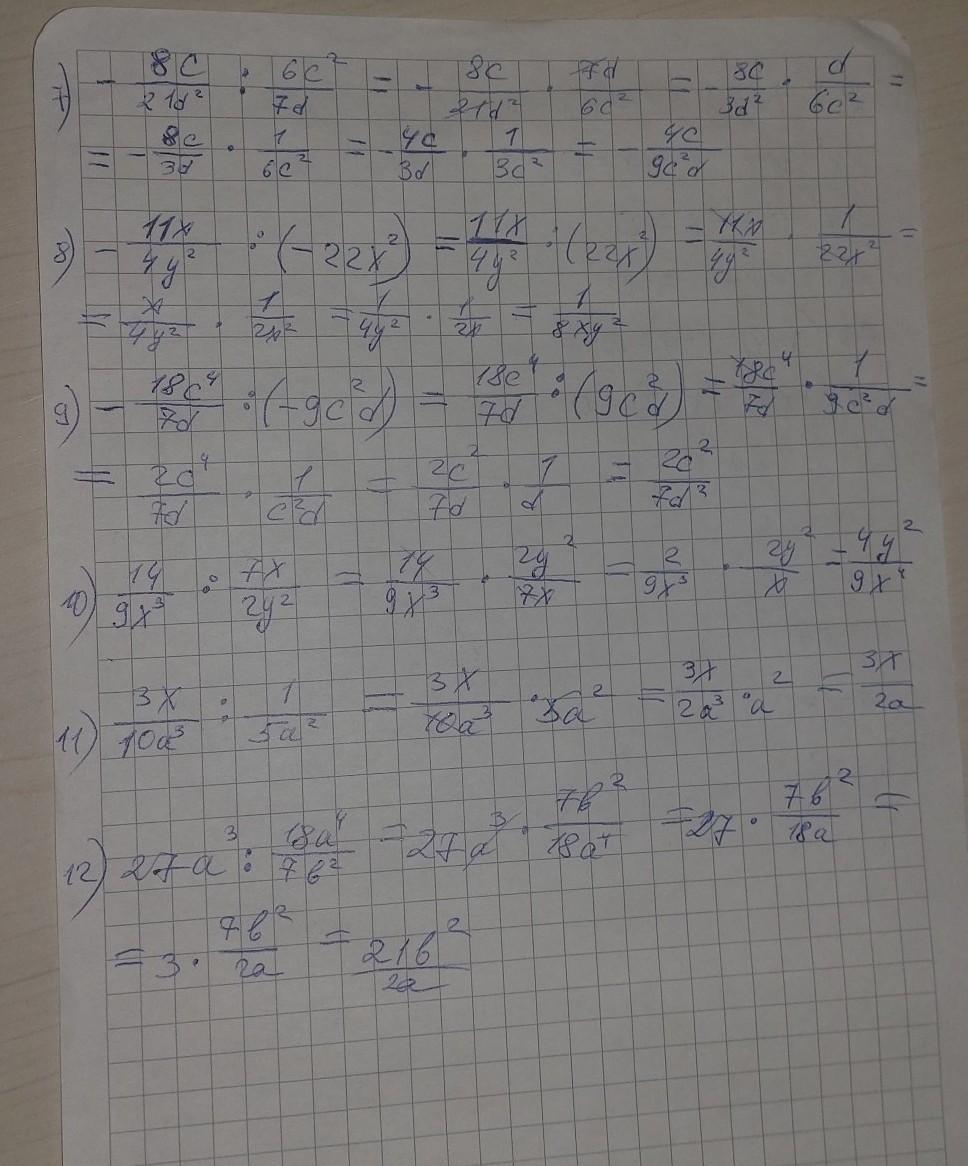 7) - 8c/21d² : 6c²/7d = - 8c/21d² · 7d/6c² = - 8c/3d² · d/6c² =
= - 8c/3d · 1/6c² = - 4c/3d · 1/3c² = - 4c/9c²d
8) - 11x/4y² : (-22x²) = 11x/4y² : (22x²) = 11x/4y² · 1/22x² =
= x/4y² · 1/2x² = 1/4y² · 1/2x = 1/8xy²
9) - 18c⁴/7d : (-9c²d) = 18c⁴/7d : (9c²d) = 18c⁴/7d · 1/9c²d =
= 2c⁴/7d · 1/c²d = 2c²/7d · 1/d = 2c²/7d²
10) 14/9x³ : 7x/2y² = 14/9x³ · 2y²/7x = 2/9x³ · 2y²/x = 4y²/9x⁴
11) 3x/10a³ : 1/5a² = 3x/10a³ · 5a² = 3x/2a³ · a² = 3x/2a
12) 27a³ : 18a⁴/7b² = 27a³ · 7b²/18a⁴ = 27 · 7b²/18a =
= 3 · 7b²/2a = 21b²/2a